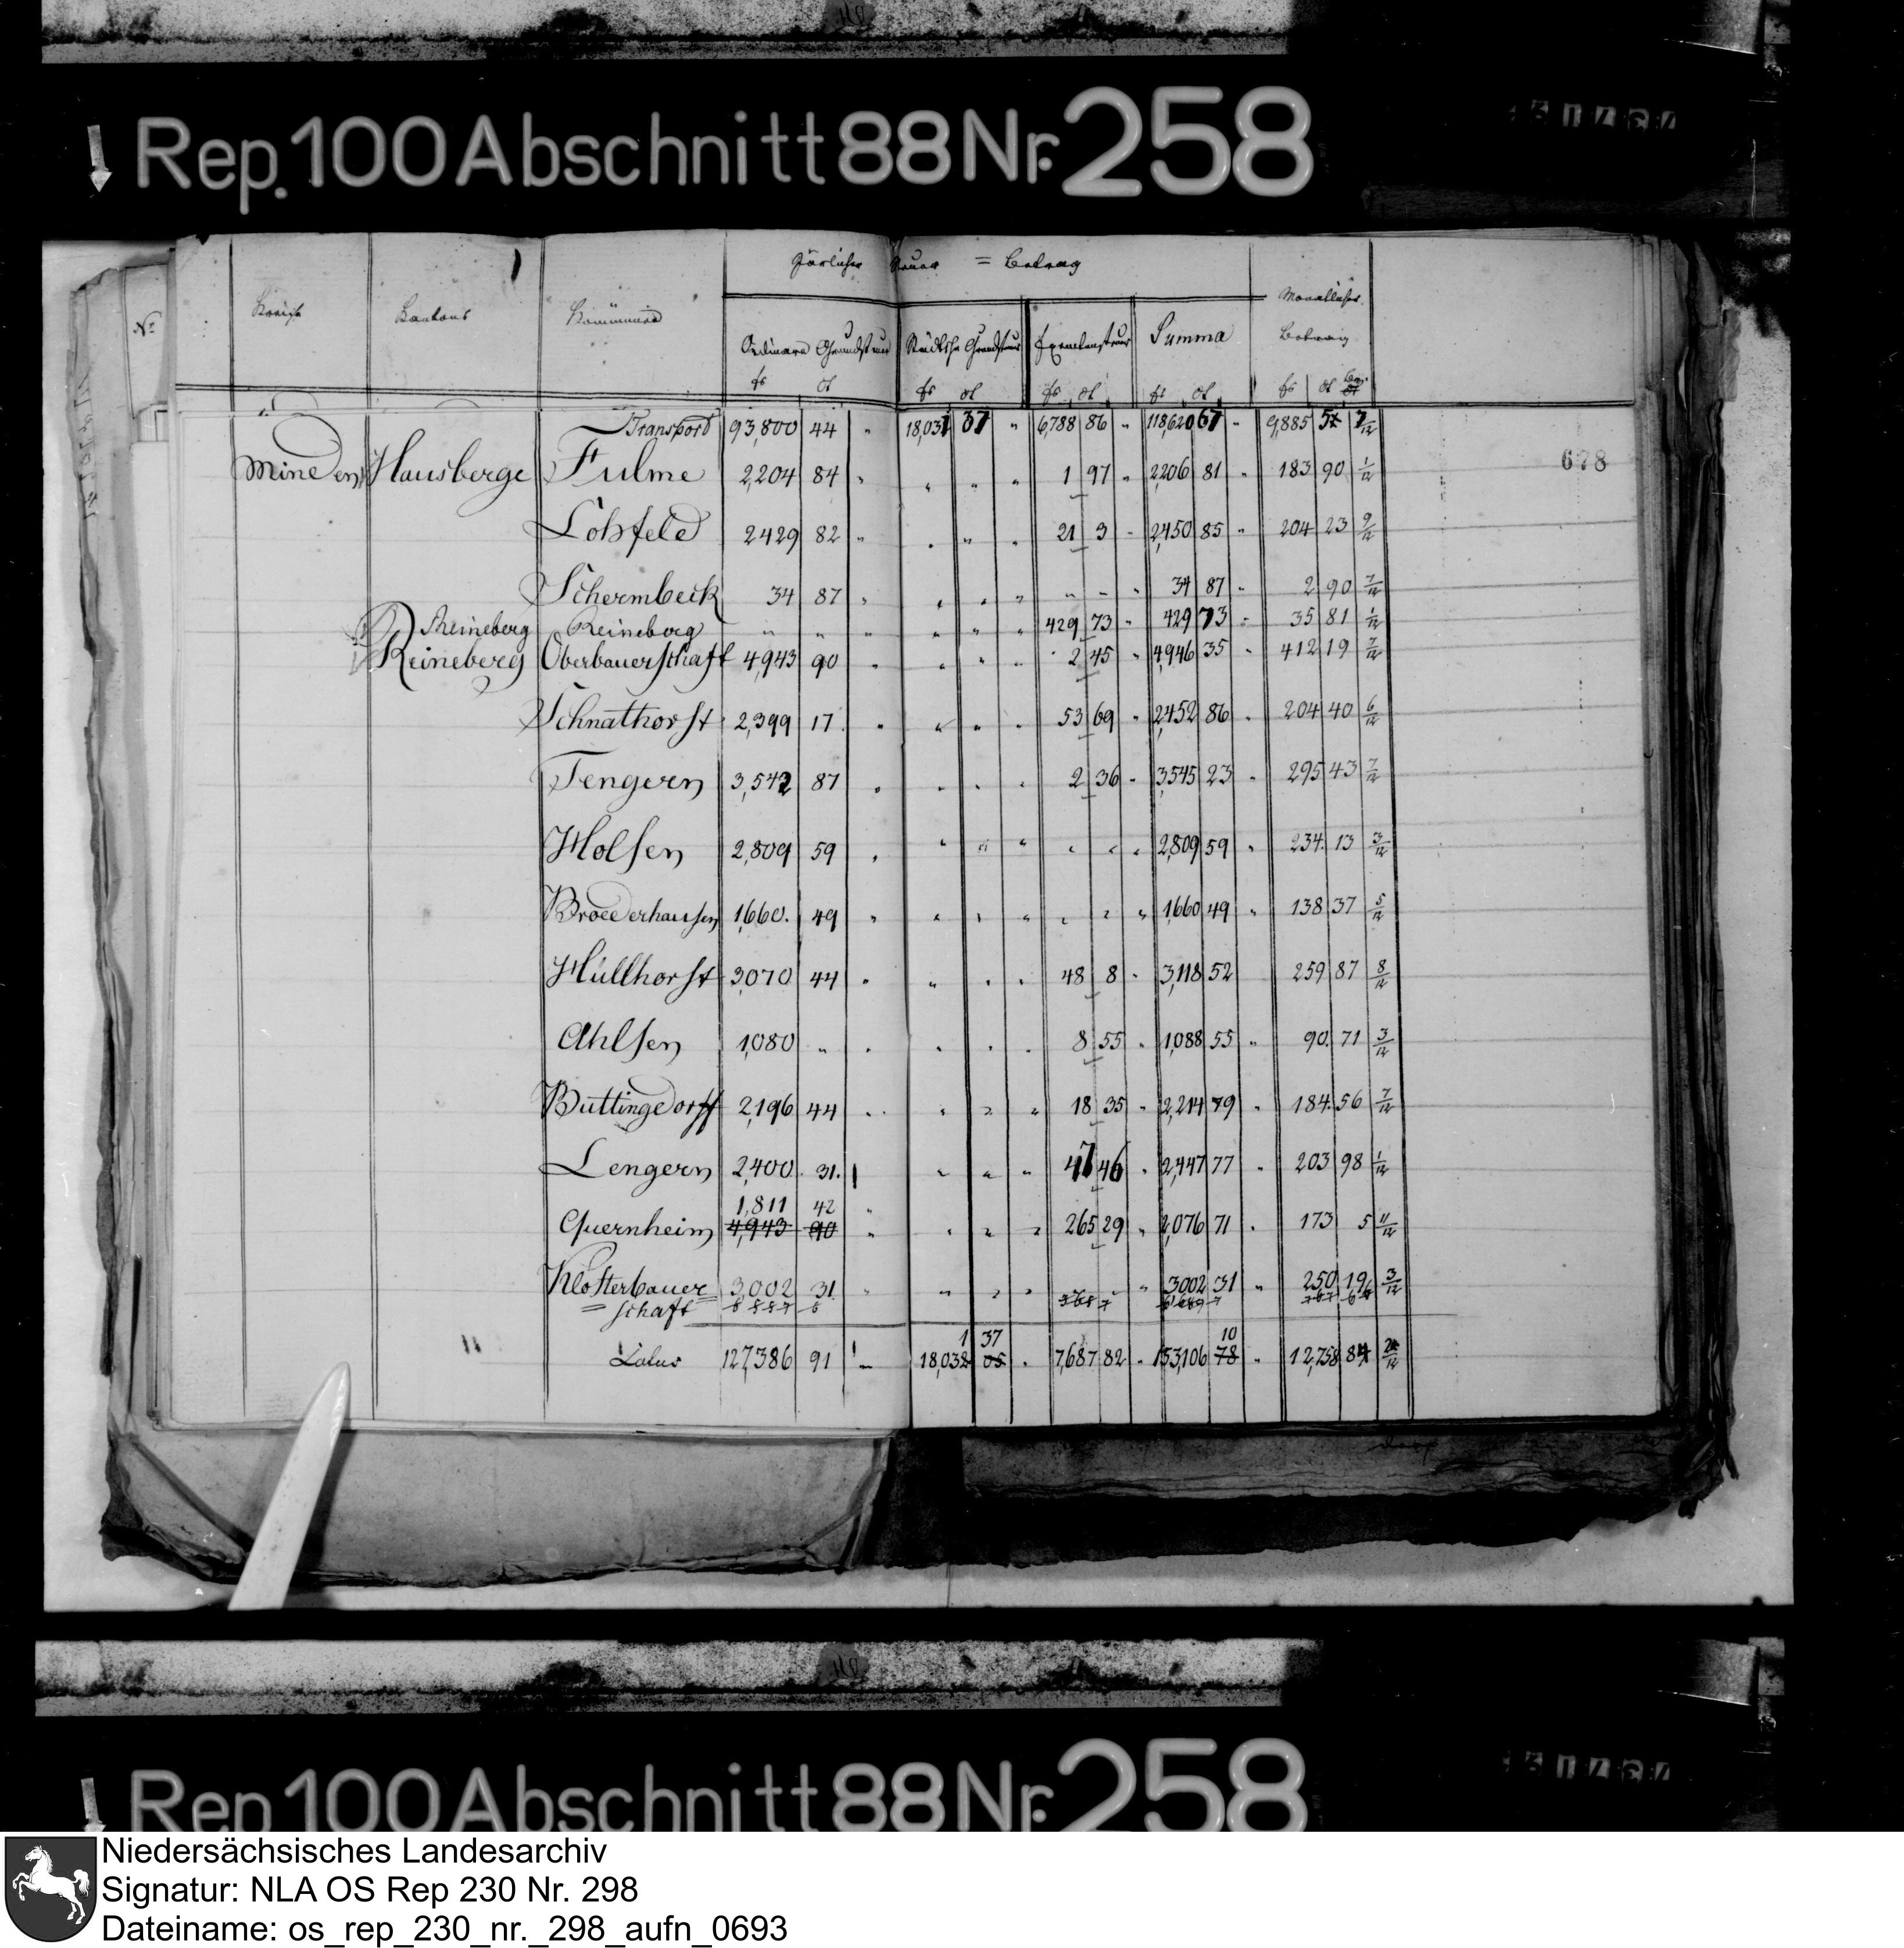 Rep. 100 Abschnitt 88 Nr. 258
Järlicher Steuer = Betrag
No Kreise Kantons Kommunen Monatlicher Betrag
Ordinaire Grundsteuer Städtsche Grundsteuer Exemtensteuer Summa
fr ct fr ct fr ct fr ct fr ct
Transport 93,800 44 " 18,031 37 " 6,788 86 " 118,620 67 " 9,885 5 7/12
678
Minden Hausberge Fulme 2,204 84 " " " " 1 97 " 2206 81 " 183 90 1/12
Lohfeld 2429 82 " " " " 21 3 " 2,450 85 " 204 23 9/12
Schermbeck 34 87 " " " " " " " 34 87 " 2 90 7/12
Reineberg Reineberg " " " " " " 429 73 " 429 73 " 35 81 1/12
Reineberg Oberbauerschaft 4,943 90 " " " " 2 45 " 4,946 35 " 412 19 7/12
Schnathorst 2,399 17 " " " " 53 69 " 2,452 86 " 204 40 6/12
Tengern 3,542 87 " " " " 2 36 " 3,545 23 " 295 43 7/12
Holsen 2,809 59 " " " " " " " 2,809 59 " 234 13 3/12
Broederhausen 1,660. 49 " " " " " " " 1,660 49 " 138 37 5/12
Hüllhorst 3,070 44 " " " " 48 8 " 3,118 52 259 87 8/12
Ahlsen 1,080 " " " " " 8 55 " 1,088 55 " 90. 71 3/12
Büttingdorff 2,196 44 " " " " 18 35 " 2,214 79 " 184. 56 7/12
Lengern 2,400 31. " " " 47 46 " 2,447 77 " 203 98 1/12
1,811 42 "
Quernheim 4,943 90 " " " " 265 29 " 2,076 71 " 173 5 11/12
Klosterbauer= 3,002 31 " " " " " " " 3002 31 " 250 19 3/12
=schaft
1 37 10
Latus 127,386 91 " 18,032 05 " 7,687 82 " 153,106 78 " 12,758 84 2/12
Rep. 100 Abschnitt 88 Nr. 258
Niedersächsisches Landesarchiv
Signatur: NLA OS Rep 230 Nr. 298
Dateiname: os_rep_230_nr._298_aufn_0693